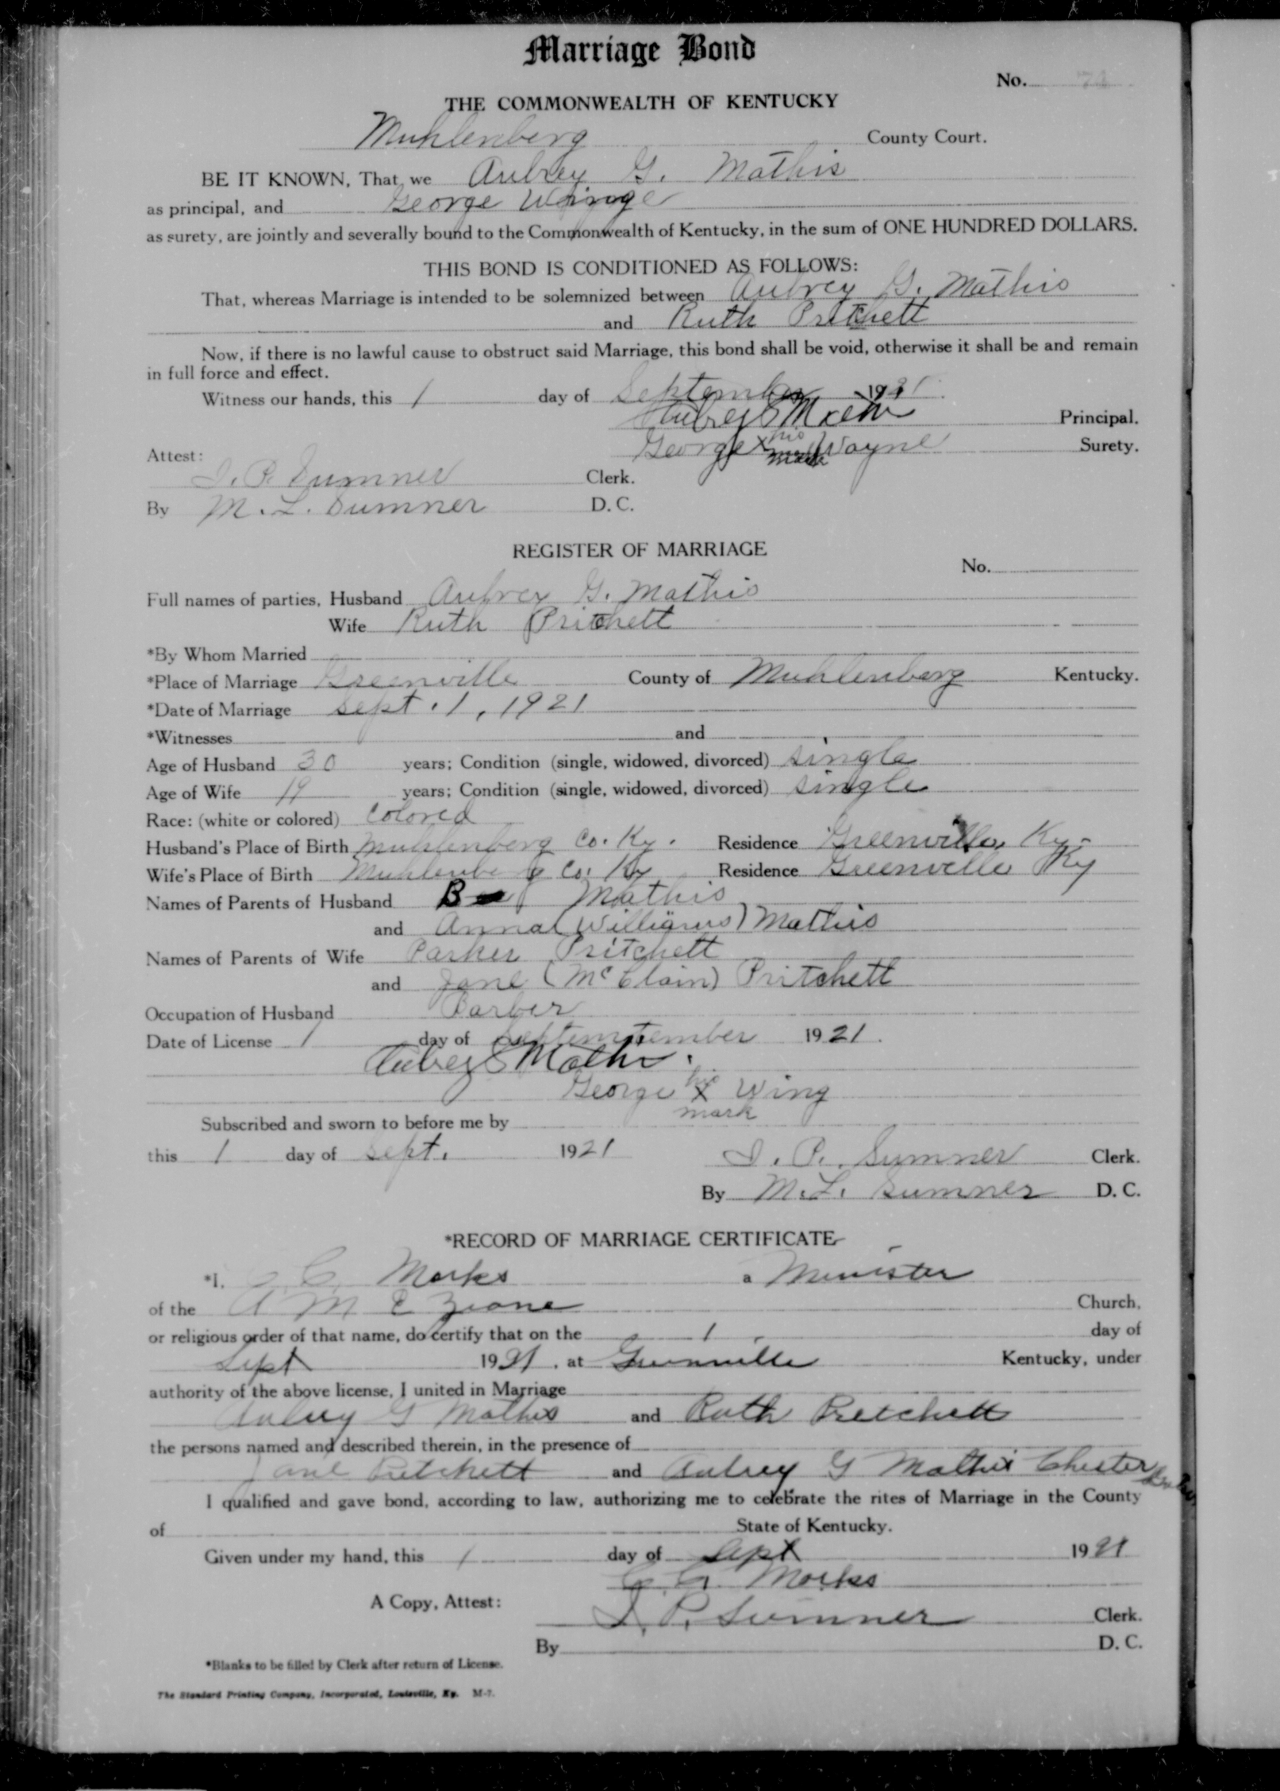 Marriage Bond
No. 74
THE COMMONWEALTH OF KENTUCKY
Muhlenberg County Court.
BE IT KNOWN, That we Aubrey G. Mathis
as principal, and George
as surety, are jointly and severally bound to the Commonwealth of Kentucky, in the sum of ONE HUNDRED DOLLARS.
THIS BOND IS CONDITIONED AS FOLLOWS:
That, whereas Marriage is intended to be solemnized between Aubrey G. Mathis
and Ruth Pritchett
Now, if there is no lawful cause to obstruct said Marriage, this bond shall be void, otherwise it shall be and remain
in full force and effect.
Witness our hands, this 1 day of September 1921.
Aubrey G Mathis Principal.
George X his mark Wayne Surety.
Attest:
I. P. Sumner Clerk.
By M. L. Sumner D. C.
REGISTER OF MARRIAGE
No.
Full names of parties, Husband Aubrey G. Mathis
Wife Ruth Pritchett
*By Whom Married
*Place of Marriage Greenville County of Muhlenberg Kentucky.
*Date of Marriage Sept. 1, 1921
*Witnesses and
Age of Husband 30 years; Condition (single, widowed, divorced) single
Age of Wife 19 years; Condition (single, widowed, divorced) single
Race: (white or colored) Colored
Husband's Place of Birth Muhlenberg Co. Ky. Residence Greenville, Ky.
Wife's Place of Birth Muhlenberg Co. Ky Residence Greenville Ky
Names of Parents of Husband Mathis
and Anna (Williams) Mathis
Names of Parents of Wife Parker Pritchett
and Jane (McClain) Pritchett
Occupation of Husband Barber
Date of License 1 day of Septemtember 1921.
Aubrey G Mathis.
George X his mark Wing
Subscribed and sworn to before me by
this 1 day of Sept. 1921 I. P. Sumner Clerk.
By M. L. Sumner D. C.
*RECORD OF MARRIAGE CERTIFICATE
*I, C C Marks a Minister
of the A M E Zione Church,
or religious order of that name, do certify that on the 1 day of
Sept 1921, at Greenville Kentucky, under
authority of the above license, I united in Marriage
Aubrey G Mathis and Ruth Pretchett
the persons named and described therein, in the presence of
Jane Pretchett and Aubrey G Mathis Chester
I qualified and gave bond, according to law, authorizing me to celebrate the rites of Marriage in the County
of State of Kentucky.
Given under my hand, this 1 day of Sept 1921
C. C. Marks
A Copy, Attest: I. P. Sumner Clerk.
By D. C.
*Blanks to be filled by Clerk after return of License.
The Standard Printing Company, Incorporated, Louisville, Ky. M-7.